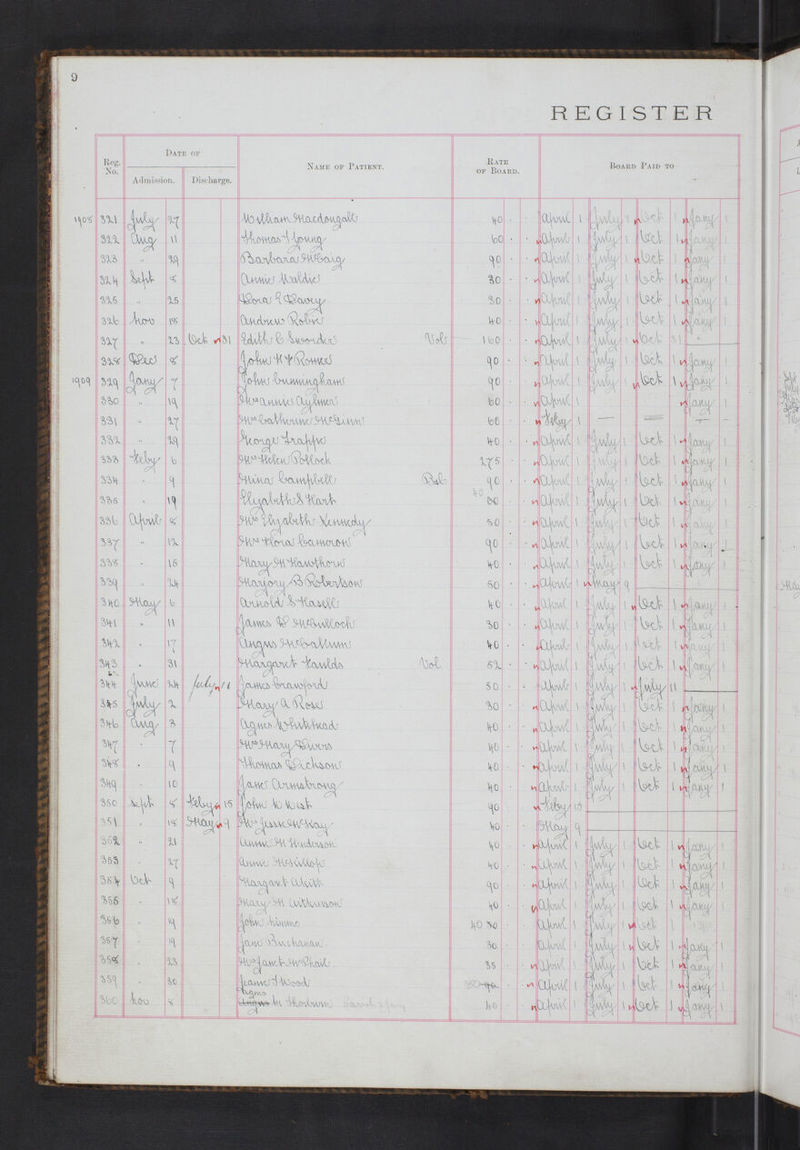 9
REGISTER
Reg. No.
DATE OF
Admission. Discharge.
NAME OF PATIENT.
RATE OF BOARD.
BOARD PAID TO
1908 321 July 27 William Macdougall 40 April 1 July 1 Oct 1 Jany 1
322 Aug 11 Thomas Young 60 April 1 July 1 Oct 1 Jany 1
323 " 29 Barbara 90 April 1 July 1 Oct 1 Jany 1
324 Sept 8 Annie Waldie 30 April 1 July 1 Oct 1 Jany 1
325 " 25 Dora 30 April 1 July 1 Oct 1 Jany 1
326 Nov 18 Andrew 40 April 1 July 1 Oct 1 Jany 1
327 " 23 Oct 31 Edith Vol 100 April 1 July 1 Oct 31
328 Dec 8 John 90 April 1 July 1 Oct 1 Jany 1
1909 329 Jany 7 John Cunningham 90 April 1 July 1 Oct 1 Jany 1
330 " 19 Mrs Annie Aylmer 60 April 1 Jany 1
331 " 27 Mrs Catherine 60 Feby 1
332 " 29 George 40 April 1 July 1 Oct 1 Jany 1
333 Feby 6 Mrs Helen Pollock 275 April 1 July 1 Oct 1 Jany 1
334 " 9 Mina Campbell 90 April 1 July 1 Oct 1 Jany 1
335 " 19 Elizabeth S Hart 40 April 1 July 1 Oct 1 Jany 1
336 April 8 Mrs Elizabeth Kennedy 50 April 1 July 1 Oct 1 Jany 1
337 " 12 Mrs Flora Cameron 90 April 1 July 1 Oct 1 Jany 1
338 " 15 Mary M Hawthorn 40 April 1 July 1 Oct 1 Jany 1
339 " 24 Marjory B Robertson 50 April 1 May 9
340 May 6 Arnold S Hasell 40 April 1 July 1 Oct 1 Jany 1
341 " 11 James McCulloch 30 April 1 July 1 Oct 1 Jany 1
342 " 17 Angus McCallum 40 April 1 July 1 Oct 1 Jany 1
343 " 31 Margaret Faulds Vol 52 April 1 July 1 Oct 1 Jany 1
344 June 24 July 11 James Crawford 50 April 1 July 1 July 11
345 July 2 Mary A Rose 30 April 1 July 1 Oct 1 Jany 1
346 Aug 3 Agnes Whitehead 40 April 1 July 1 Oct 1 Jany 1
347 " 7 Mrs Mary 40 April 1 July 1 Oct 1 Jany 1
348 " 9 Thomas Dickson 40 April 1 July 1 Oct 1 Jany 1
349 " 10 Jane Armstrong 40 April 1 July 1 Oct 1 Jany 1
350 Sept 8 Feby 15 John W 90 Feby 15
351 " 18 May 9 Mrs Jessie McKay 40 May 9
352 " 21 Annie M Henderson 40 April 1 July 1 Oct 1 Jany 1
353 " 27 Annie 40 April 1 July 1 Oct 1 Jany 1
354 Oct 9 Margaret 90 April 1 July 1 Oct 1 Jany 1
355 " 18 Mary M 40 April 1 July 1 Oct 1 Jany 1
356 " 19 John 40 30 April 1 July 1 Oct
357 " 19 Jane Buchanan 30 April 1 July 1 Oct 1 Jany 1
358 " 23 Mrs Janet McPhail 35 April 1 July 1 Oct 1 Jany 1
359 " 30 Jeanie T Wood April 1 July 1 Oct 1 Jany 1
360 Nov 8 Agnes 40 April 1 July 1 Oct 1 Jany 1